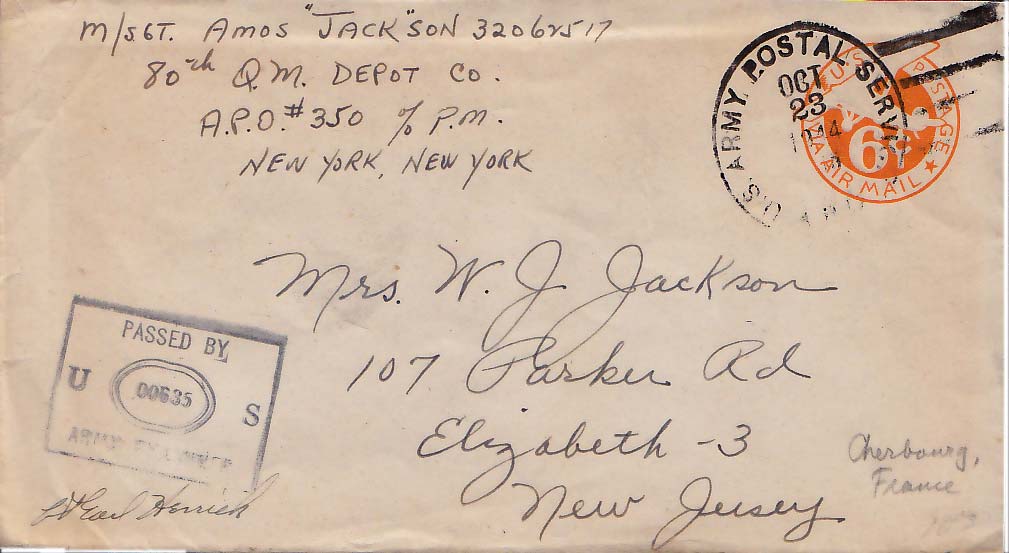 M/SGT. AMOS "JACK"SON 32062517
80th Q.M. DEPOT CO.
A.P.O. #350 % P.M.
NEW YORK, NEW YORK
U.S. ARMY POSTAL SERVICE
OCT
23
1944
U.S. POSTAGE
6¢
VIA AIR MAIL
Mrs. W. J. Jackson
107 Parker Rd
Elizabeth -3
New Jersey
PASSED BY
U 00635 S
ARMY EXAMINER
Lt Earl Herrick
Cherbourg,
France